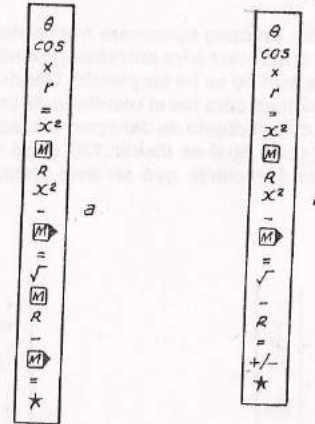 θ
cos
x
r
=
x²
M
R
x²
-
M
=
√
M
R
-
M
=
★
a
θ
cos
x
r
=
x²
M
R
x²
-
M
=
√
-
R
=
+/-
★